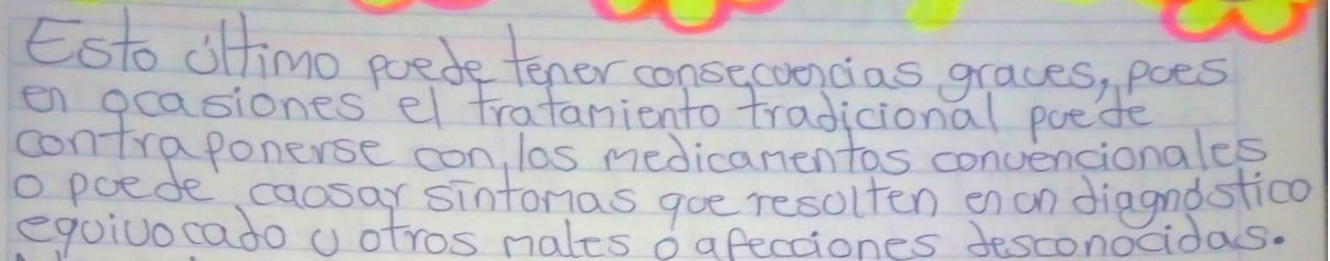 Esto último puede tener consecuencias graves, pues
en ocasiones el tratamiento tradicional puede
contraponerse con los medicamentos convencionales
o puede causar síntomas que resulten en un diagnóstico
equivocado u otros males o afecciones desconocidas.